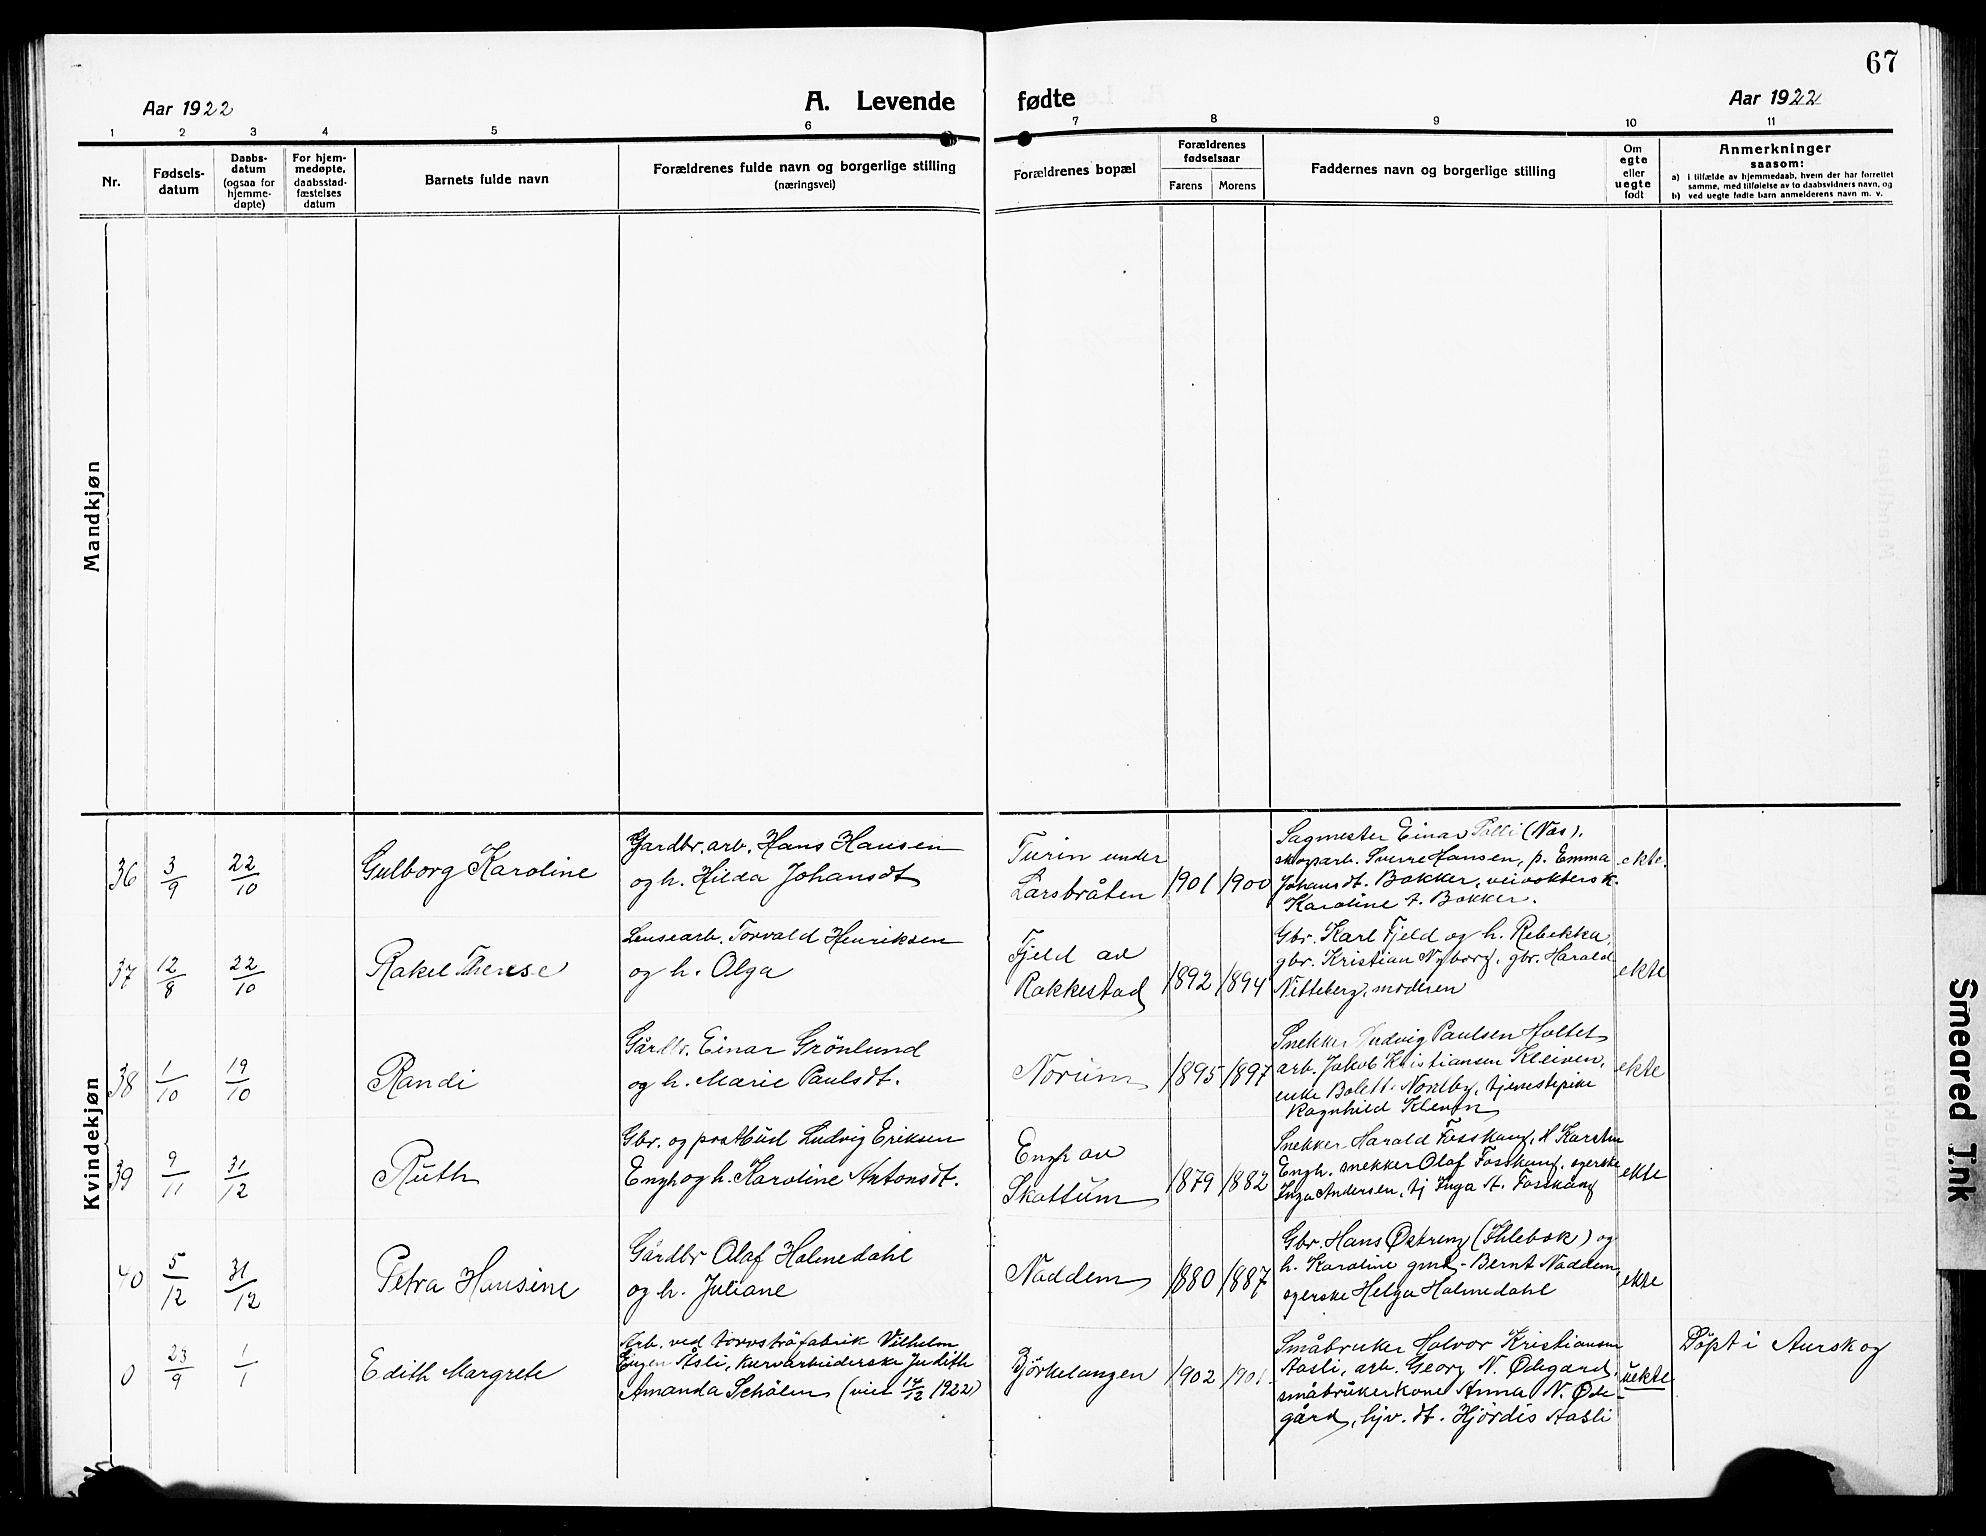 67
Aar 1922
A. Levende fødte
Aar 1922
1 2 3 4 5 6 7 8 9 10 11
Nr.
Fødsels-
datum
Daabs-
datum
(ogsaa for
hjemme-
døpte)
For hjem-
medøpte,
daabsstad-
fæstelses
datum
Barnets fulde navn
Forældrenes fulde navn og borgerlige stilling
(næringsvei)
Forældrenes bopæl
Forældrenes
fødselsaar
Farens Morens
Faddernes navn og borgerlige stilling
Om
egte
eller
uegte
født
Anmerkninger
saasom:
a) i tilfælde av hjemmedaab, hvem der har forrettet
samme, med tilføielse av to daabsvidners navn, og
b) ved uegte fødte barn anmelderens navn m. v.
Mandkjøn
Kvindekjøn
36 3/9 22/10
Gulborg Karoline
Gardbr. arb. Hans Hansen
og h. Hilda Johansdt
Turin under
Larsbråten
1901 1900
Sagmester Einar Tolli (Nes).
skogsarb. Sverre Hansen, p. Emma
Johansdt. Bakker, veivokters k.
Karoline A. Bakker.
ekte.
37 12/8 22/10
Rakel Therese
Lensearb. Torvald Henriksen
og h. Olga
Fjeld av
Rakkestad
1892 1894
Gbr. Karl Fjeld og h. Rebekka,
gbr. Kristian Nyborg, gbr. Harald
Nitteberg, moderen
ekte
38 1/10 19/10
Randi
Gårdbr. Einar Grönlund
og h. Marie Paulsdt.
Norum
1895 1897
Snekker Ludvig Paulsen Holtet
arb. Jakob Kristiansen Kleiven,
enke Bolett Nordby, tjenestepike
Ragnhild Kleven
ekte
39 9/11 31/12
Ruth
Gbr. og postbud Ludvig Eriksen
Engh og h. Karoline Antonsdt.
Engh av
Skattum
1879 1882
Snekker Harald Fosskaug, Karsten
Engh. snekker Olaf Fosskaug, syerske
Inga Andersen, tj Inga A. Fosskaug
ekte
40 5/12 31/12
Petra Hansine
Gårdbr Olaf Holmedahl
og h. Juliane
Naddem
1880 1887
Gbr. Hans Østreng (Ihlebæk) og
h. Karoline gmd. Bernt Naddem,
syerske Helga Holmedahl
ekte
0 23/9 1/1
Edith Margrete
Arb. ved torvströfabrik Vilhelm
Eugen Åsli, kurvarbiderske Judith
Amanda Schölen (viet 14/12 1922)
Björkelangen
1902
Småbruker Halvor Kristiansen
Aasli, arb. Georg N. Ødegard,
småbrukerkone Anna N. Øde-
gård, hjv. dt. Hjördis Aasli
uekte
Döpt i Aurskog
Smeared Ink